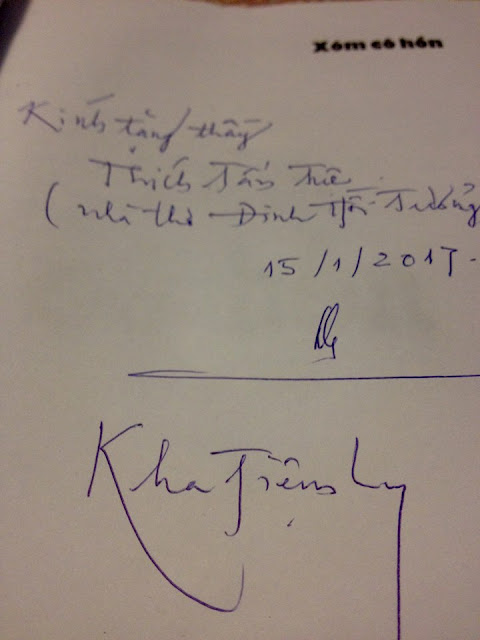 Xóm cô hồn
Kính tặng thầy
Thích Tấn Tuệ
( nhà thơ Đinh Hồi Tưởng
15/1/2017.
Kha Tiệm Ly